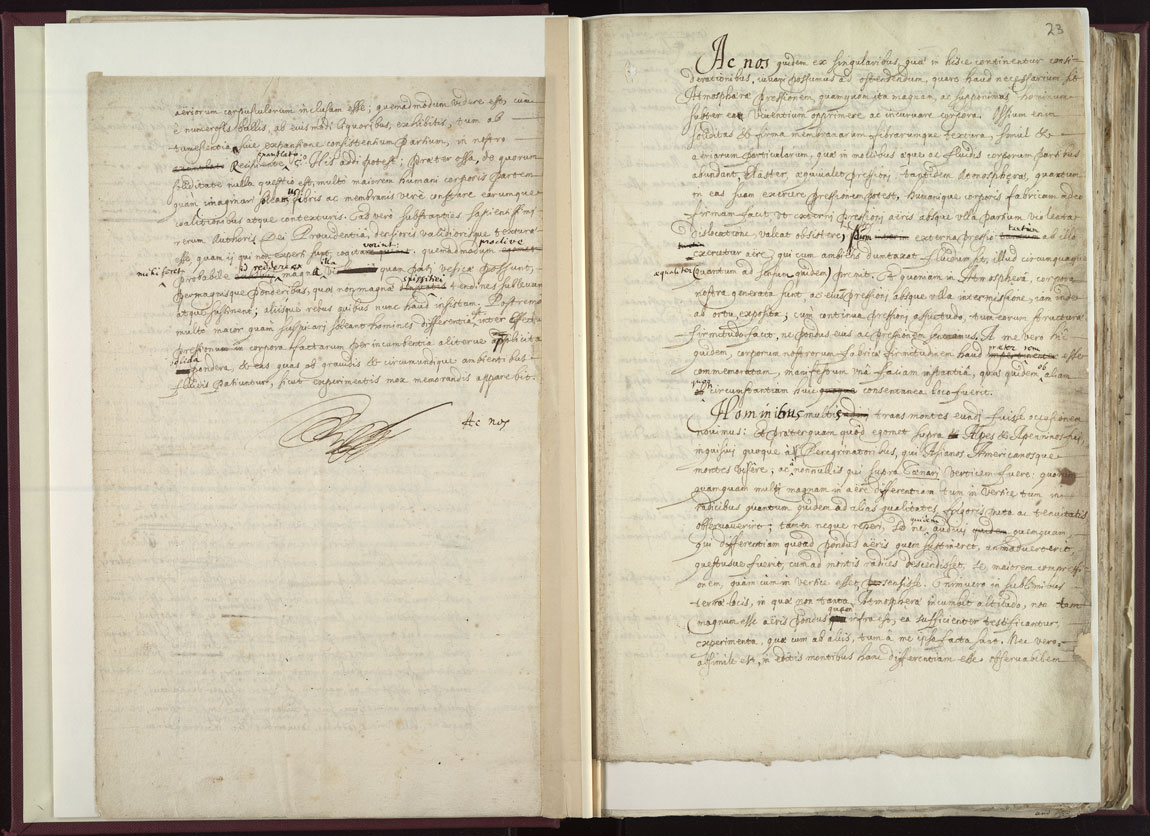 aëriorum corpusculorum inclusam esse; quemadmodum videre est, cùm
è numerosis bullis, ab eius modi liquoribus, exhibitis, tum ab
tumescentia, sive expansione consistentium partium, in nostro
exantlato
Recipiente, &c: His addi potest; præter ossa, de quorum
soliditate nulla quæstio est, multò maiorem humani corporis partem
quam imaginari solemus, fibris ac membranis verè constare earumque
coalitionibus atque contexturis. Eas verò substantias sapientissimi
rerum Authoris Dei Providentia, densioris validiorisque texturæ
esse, quam ij qui non experti sunt, cogitaverint, quemadmodum proclive
mihi foret
probabile reddere ex magna illa vi quam pati vesicæ possunt,
permagnisque ponderibus, quæ non magnæ crassitiei tendines sublevant
atque sustinent; aliisque rebus quibus nunc haud insistam. Postremò
multò maior quam suspicari soleant homines differentia est, inter effectus
pressionum in corpora factarum per incumbentia aliterue applicita
solida
pondera, & eas quas ab gravidis & circumundique ambientibus
fluidis patiuntur, sicut experimentis mox memorandis apparebit.
Ac nos
23
Ac nos quidem ex singularibus, quæ in hisce continentur consi-
derationibus, iuvari possumus ad ostendendum, quare haud necessarium sit
Atmosphæræ pressionem, quamquam ita magnam, ac supponimus hominum
subter eâ viventium opprimere ac incurvare corpora. Ossium enim
soliditas & firma membranarum fibrarumque textura, simul &
aëriarum particularum, quæ in mollibus æquè ac fluidis corporum partibus
abundant, elater, æquivalet pressioni tantisdem Atmosphæræ, quantum
in eas suam exerere pressionem potest, humanique corporis fabricam adeo
firmam facit ut externi pressioni aëris absque ulla partium violenta
dislocatione, valeat obsistere, dum externa pressio tantum ab illo
exercetur aëre, qui cum ambiens duntaxat fluidum sit, illud circumquaque
æqualiter
(quantum ad sensum quidem) premit. Et quoniam in Atmosphæra, corpora
nostra generata sunt, ac eius pressioni absque ulla intermissione, iam inde
ab ortu, exposita; cum continua pressioni assuetudo, tum eorum structuræ
firmitudo facit, ne pondus eius ac pressionem sentiamus. A me vero hîc
quidem, corporum nostrorum fabricæ firmitudinem haud præter rem esse
commemoratam, manifestum unâ faciam instantiâ, quæ quidem ob aliam
quoque circumstantiam huic consentanea loco fuerit.
Hominibus multis trans montes eundi fuisse occasionem
novimus: Et præterquam quod egomet supra Alpes & Apenninos fui
inquisivi quoque à Peregrinatoribus, qui Asianos Americanosque
montes visêre; ac à nonnullis qui supra Tænari verticem fuere: quorum
quamquam multi magnam in aëre differentiam tum in vertice tum in
radicibus quantum quidem ad alias qualitates, frigoris puta ac tenuitatis
observaverint; tamen neque reperi, sed ne audivi quidem quemquam,
qui differentiam quoad pondus aëris quem sustineret, animadverterit
questusve fuerit, cum ad montis radices descendisset, se maiorem compressi-
onem, quam cum in vertice esset, sensisse. Enimvero in sublimibus
terræ locis, in quæ non tanta Atmosphæræ incumbit altitudo, non tam
magnum esse aëris pondus quam infra est, ea sufficienter testificantur
experimenta, quæ cum ab aliis, tum à me ipso facta sunt. Nec vero
absimile est, in editis montibus hanc differentiam esse observabilem